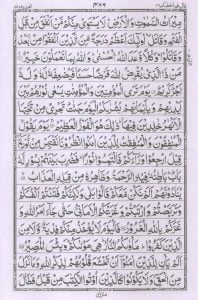 مِيْرَاثُ السَّمٰوٰتِ وَالْاَرْضِ لَا يَسْتَوِيْ مِنْكُمْ مَّنْ اَنْفَقَ مِنْ قَبْلِ
الْفَتْحِ وَقٰتَلَ اُولٰٓئِكَ اَعْظَمُ دَرَجَةً مِّنَ الَّذِيْنَ اَنْفَقُوْا مِنْۢ بَعْدُ
وَقٰتَلُوْا وَكُلًّا وَّعَدَ اللّٰهُ الْحُسْنٰى وَاللّٰهُ بِمَا تَعْمَلُوْنَ خَبِيْرٌ
مَنْ ذَا الَّذِيْ يُقْرِضُ اللّٰهَ قَرْضًا حَسَنًا فَيُضٰعِفَهٗ لَهٗ وَلَهٗٓ اَجْرٌ
كَرِيْمٌ يَوْمَ تَرَى الْمُؤْمِنِيْنَ وَالْمُؤْمِنٰتِ يَسْعٰى نُوْرُهُمْ بَيْنَ
اَيْدِيْهِمْ وَبِاَيْمَانِهِمْ بُشْرٰىكُمُ الْيَوْمَ جَنّٰتٌ تَجْرِيْ مِنْ تَحْتِهَا
الْاَنْهٰرُ خٰلِدِيْنَ فِيْهَا ذٰلِكَ هُوَ الْفَوْزُ الْعَظِيْمُ يَوْمَ يَقُوْلُ
الْمُنٰفِقُوْنَ وَالْمُنٰفِقٰتُ لِلَّذِيْنَ اٰمَنُوا انْظُرُوْنَا نَقْتَبِسْ مِنْ نُّوْرِكُمْ
قِيْلَ ارْجِعُوْا وَرَآءَكُمْ فَالْتَمِسُوْا نُوْرًا فَضُرِبَ بَيْنَهُمْ بِسُوْرٍ لَّهٗ
بَابٌ بَاطِنُهٗ فِيْهِ الرَّحْمَةُ وَظَاهِرُهٗ مِنْ قِبَلِهِ الْعَذَابُ
يُنَادُوْنَهُمْ اَلَمْ نَكُنْ مَّعَكُمْ قَالُوْا بَلٰى وَلٰكِنَّكُمْ فَتَنْتُمْ اَنْفُسَكُمْ
وَتَرَبَّصْتُمْ وَارْتَبْتُمْ وَغَرَّتْكُمُ الْاَمَانِيُّ حَتّٰى جَآءَ اَمْرُ اللّٰهِ وَ
غَرَّكُمْ بِاللّٰهِ الْغَرُوْرُ فَالْيَوْمَ لَا يُؤْخَذُ مِنْكُمْ فِدْيَةٌ وَّلَا مِنَ
الَّذِيْنَ كَفَرُوْا مَاْوٰىكُمُ النَّارُ هِيَ مَوْلٰىكُمْ وَبِئْسَ الْمَصِيْرُ
اَلَمْ يَاْنِ لِلَّذِيْنَ اٰمَنُوْٓا اَنْ تَخْشَعَ قُلُوْبُهُمْ لِذِكْرِ اللّٰهِ وَمَا نَزَلَ
مِنَ الْحَقِّ وَلَا يَكُوْنُوْا كَالَّذِيْنَ اُوْتُوا الْكِتٰبَ مِنْ قَبْلُ فَطَالَ